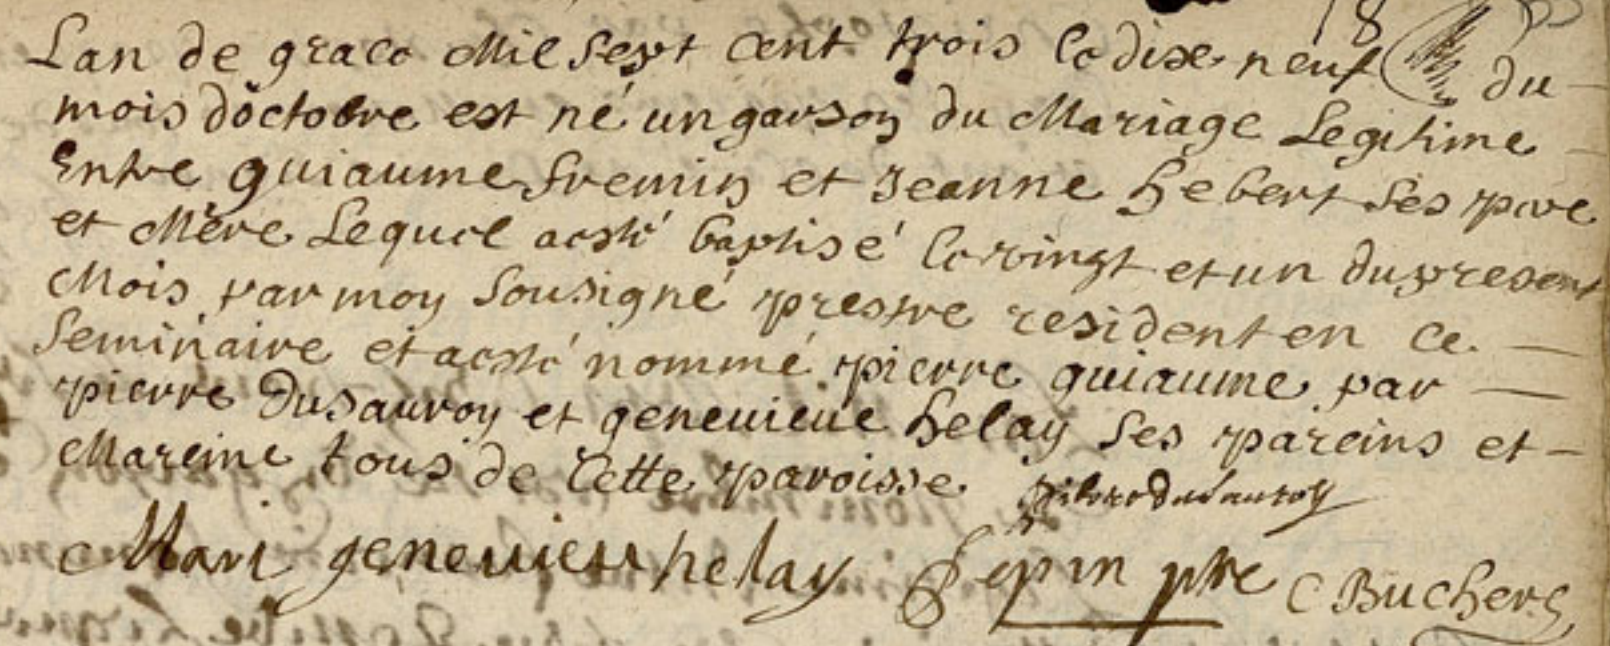 Lan de grace Mil sept cent trois le dixe neuf du
mois d'octobre est né un garson du Mariage Legitime
Entre guiaume fremin et Jeanne hebert ses pere
et Mere Lequel a esté baptisé le vingt et un du present
Mois par moy sousigné prestre resident en ce
Seminaire et a esté nommé pierre guiaume par
pierre Dusauroy et genevieve helay ses pareins et
Mareine tous de Cette paroisse. pierre dusauroy
Mari genevieu helay pepin ptre C Buchere